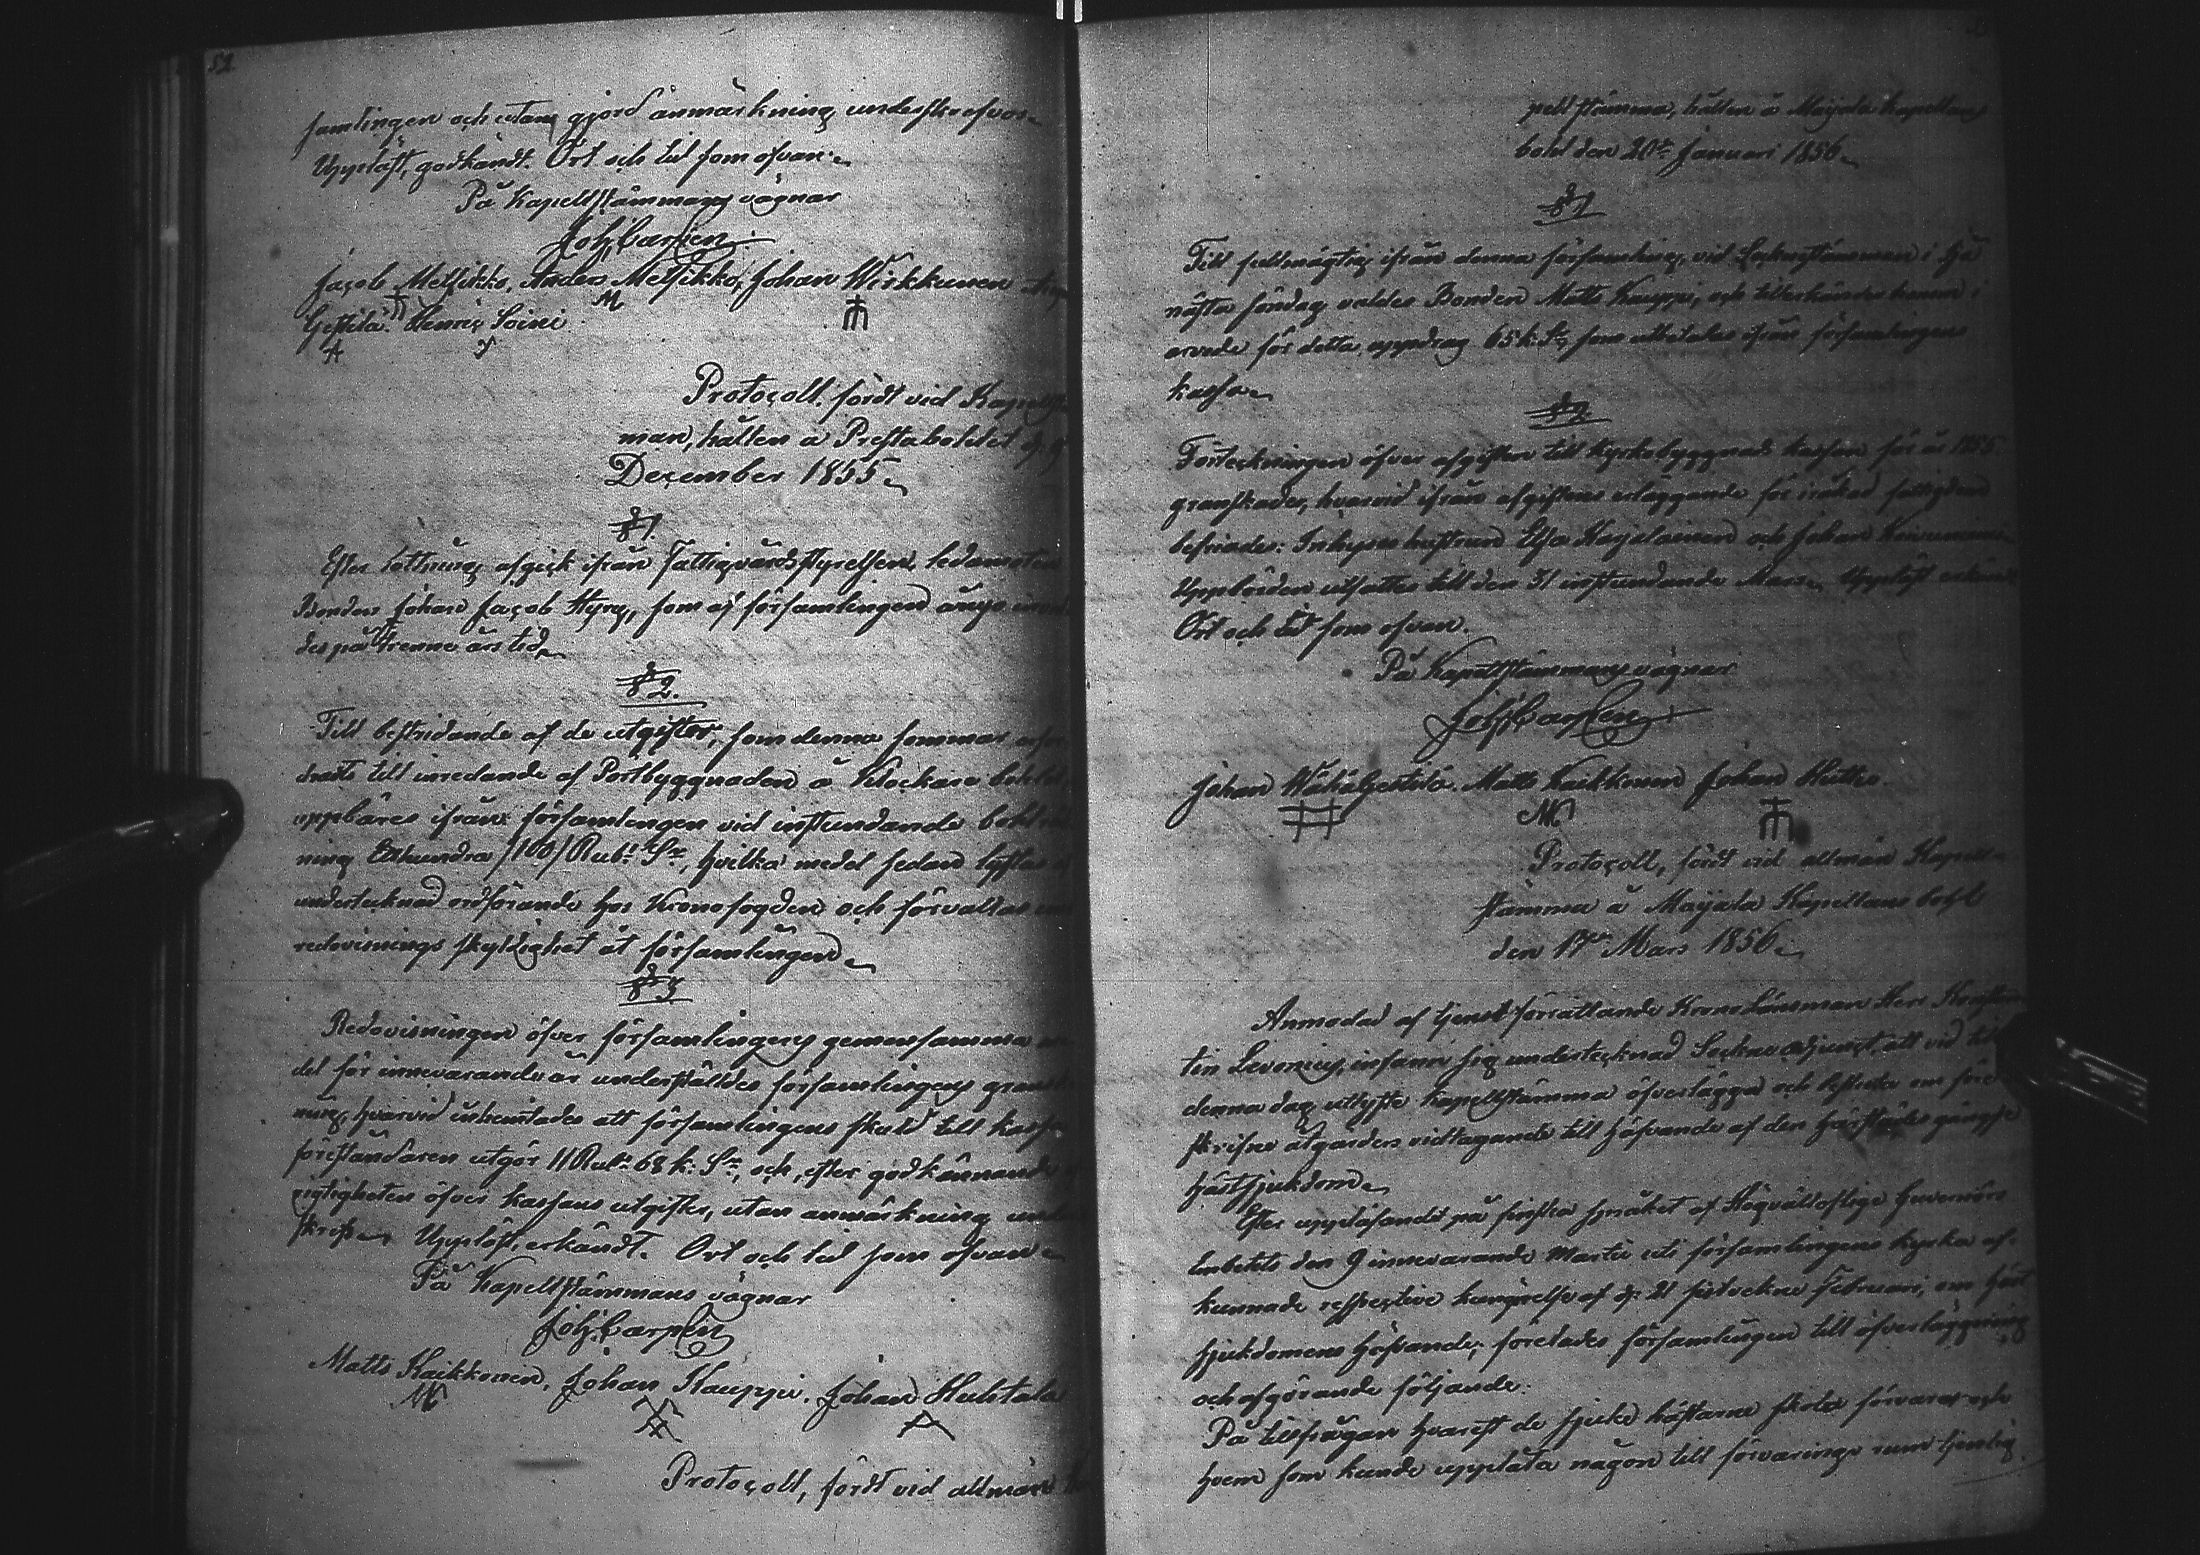 52.
samlingen och utan gjord anmärkning underskrefvos
Uppläst, godkändt. Ort och tid som ofvan.
På Kapellstämmans vägnar
Joh. Carpén.
Jacob Metsikko, Anders Metsikko, Johan Wirkkunen
Gestilä. Henric Soini.
Protocoll, fördt vid Kapellstä
man, hållen å Prestabohlet d. 9
December 1855.
§ 1.
Efter lottning afgick ifrån Fattigvårdsstyrelsen ledamoten
Bonden Johan Jacob Hyry, som af församlingen ånyo
des på trenne års tid.
§ 2.
Till bestridande af de utgifter, som denna sommar
drats till inredande af Portbyggnaden å Klockare bohlet
uppbäres ifrån församlingen vid instundande
ning Etthundra /100/ Rub. Sr, hvilka medel sedan lyftas af
undertecknad ordförande hos Kronofogden och förvaltas
redovisnings skyldighet åt församlingen.
§ 3
Redovisningen öfver församlingens gemensamma
del för innevarande år underställdes församlingens gransk
ning, hvarvid inhemtades att församlingens skuld till kassa
föreståndaren utgör 11 Rub. 68 k. Sr, och, efter godkännande
rigtigheten öfver kassans utgifter, utan anmärkning under
skrefs. Uppläst, erkändt. Ort och tid som ofvan.
På Kapellstämmans vägnar
Joh. Carpén
Matts Kaikkonen, Johan Kauppi, Johan Huhtala
Protocoll, fördt vid allmän
pellstämma, hållen å Maijala Kapellans
bohl den 20de Januari 1856.
§ 1
Till fullmägtig ifrån denna församling, vid Sockenstämman i
nästa söndag valdes Bonden Matts Kauppi, och tillerkändes honom i
arvode för detta uppdrag 65 k. Sr, som utbetalas ifrån församlingens
kassa.
§ 2.
Förteckningen öfver afgiften till Kyrkobyggnads kassan för år 1855
granskades, hvarvid ifrån afgiftens erläggande för iråkad fattigdom
befriades: Inhyses hustrun Elsa Karjalainen och Johan
Uppbörden utsattes till den 31 instundande Mars. Uppläst erkändt
Ort och tid som ofvan.
På Kapellstämmans vägnar
Joh. Carpén
Johan Wähägestilä. Matts Kaikkonen Johan Huttu.
Protocoll, fördt vid allmän Kapell-
stämma å Maijala Kapellans bohl
den 17de Mars 1856.
Anmodad af tjenst förrättande Krono Länsman Herr Konstan
tin Levonius, infann sig undertecknad Sockneadjunct, att vid till
denna dag utlyste kapellstämma öfverlägga och besluta om före
skrifne åtgärders vidtagande till häfvande af den härstädes gängse
hästsjukdom.
Efter uppläsandet på finska språket af Högvällofliga Guvernörs
embetets den 9 innevarande Martii uti församlingens kyrka af-
kunnade respective kungörelse af d. 21 sistvekne Februari, om häst
sjukdomens häfvande; företades församlingen till öfverläggning
och afgörande följande:
På tillfrågan hvarest de sjuke hästarne skola förvaras och
hvem som kunde upplåta någon till förvarings rum tjenlig